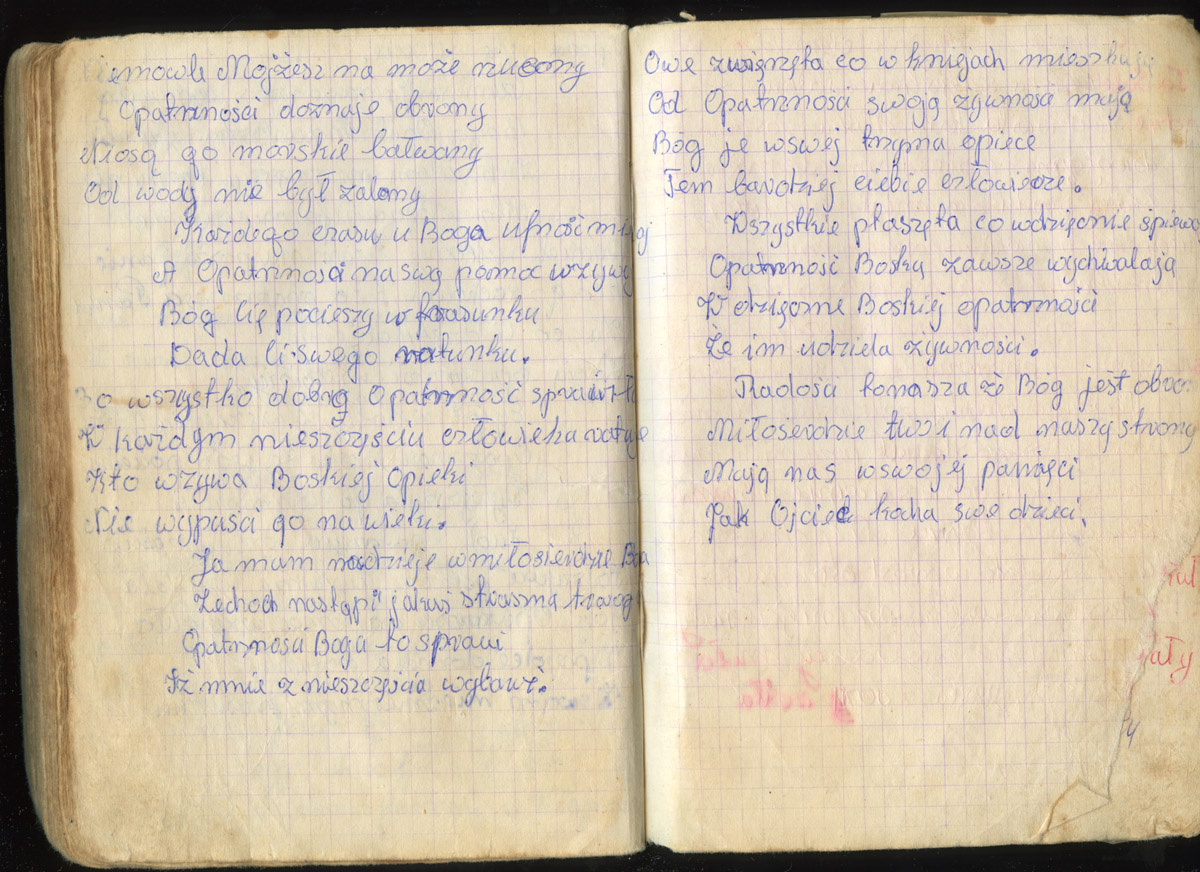 Niemowle Mojżesz na może niucony
Opatrzności doznaje obrony
Niosą go morskie bałwany
Od wody nie był zalany
Każdego czasu u Boga ufność miej
A Opatrzności na swą pomoc wzywaj
Bóg Cię pocieszy w frasunku
Dada Ci swego ratunku.
Bo wszystko dobrą Opatrzność sprawi
W każdym nieszczęściu człowieka ratuje
Kto wzywa Boskiej Opieki
Nie wypuści go na wieki.
Ja mam nadzieje w miłosierdzie Boga
Zechoch nastąpi jakaś straszna trwog
Opatrzności Boga to sprawi
Iż mnie z nieszczęścia wybawi.
Owe zwięrzęta co w kniejach mieszkają
Od Opatrzności swoją żywność mają
Bóg je w swej trzyma opiece
Tem bardziej ciebie człowiecze.
Wszystkie ptaszęta co wdzięcznie śpiewa
Opatrzność Boską zawsze wychwalają
W dzięczne Boskiej opatrzności
Że im udziela żywności.
Radości to nasza że Bóg jest obro
Miłosierdzie twoi nad naszą stroną
Mają nas w swojej pamięci
Jak Ojciec kocha swe dzieci.